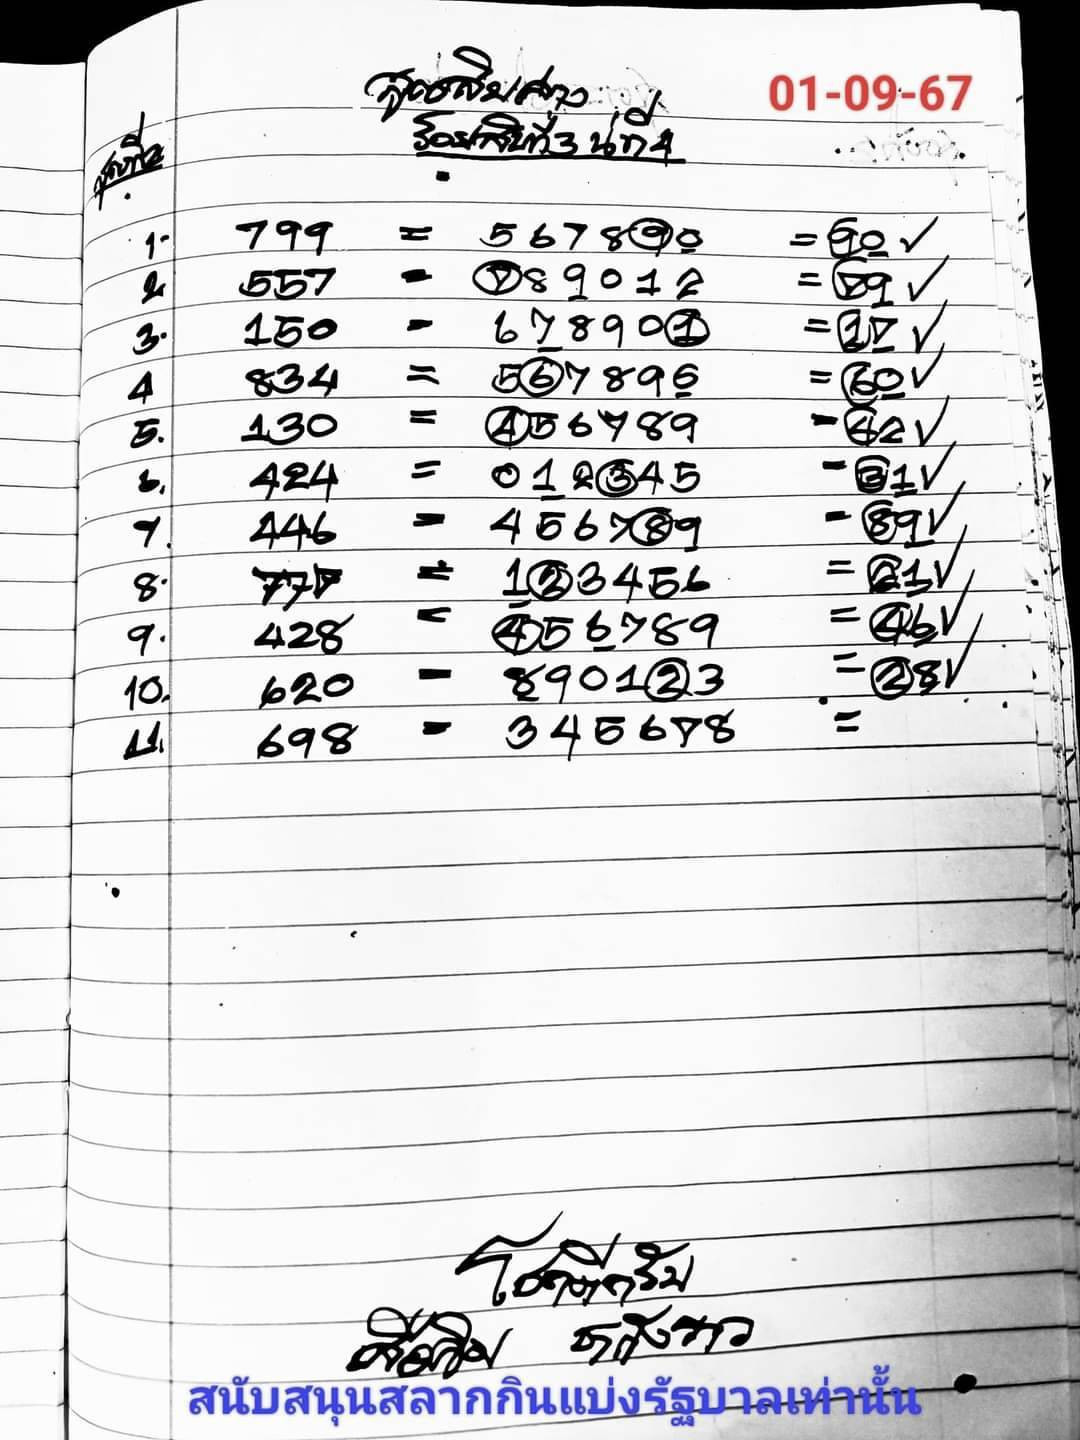 สูตรสิบสาว
01-09-67
ร้อยสิบที่3 นที่4
สูตรที่2
1. 799 = 567890 = 90 ✓
2 557 - 789012 = 79 ✓
3. 150 - 678901 = 17 ✓
4 834 = 567890 = 60 ✓
5. 130 = 456789 - 42 ✓
6. 424 = 012345 - 31 ✓
7. 446 - 456789 - 89 ✓
8. 777 = 123456 = 21 ✓
9. 428 = 456789 = 46 ✓
10. 620 - 890123 = 28 ✓
11. 698 - 345678 =
โชคดีครับ
สนับสนุนสลากกินแบ่งรัฐบาลเท่านั้น